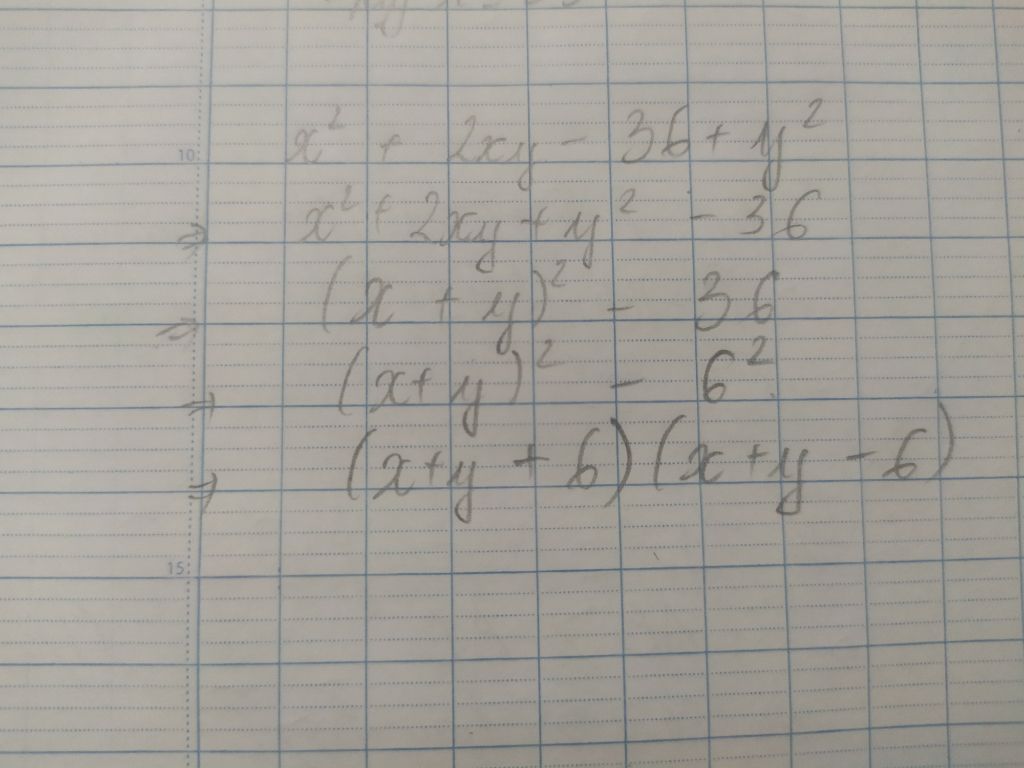 x² + 2xy - 36 + y²
10
⇒ x² + 2xy + y² - 36
⇒ (x + y)² - 36
⇒ (x+y)² - 6²
⇒ (x+y + 6)(x+y - 6)
15